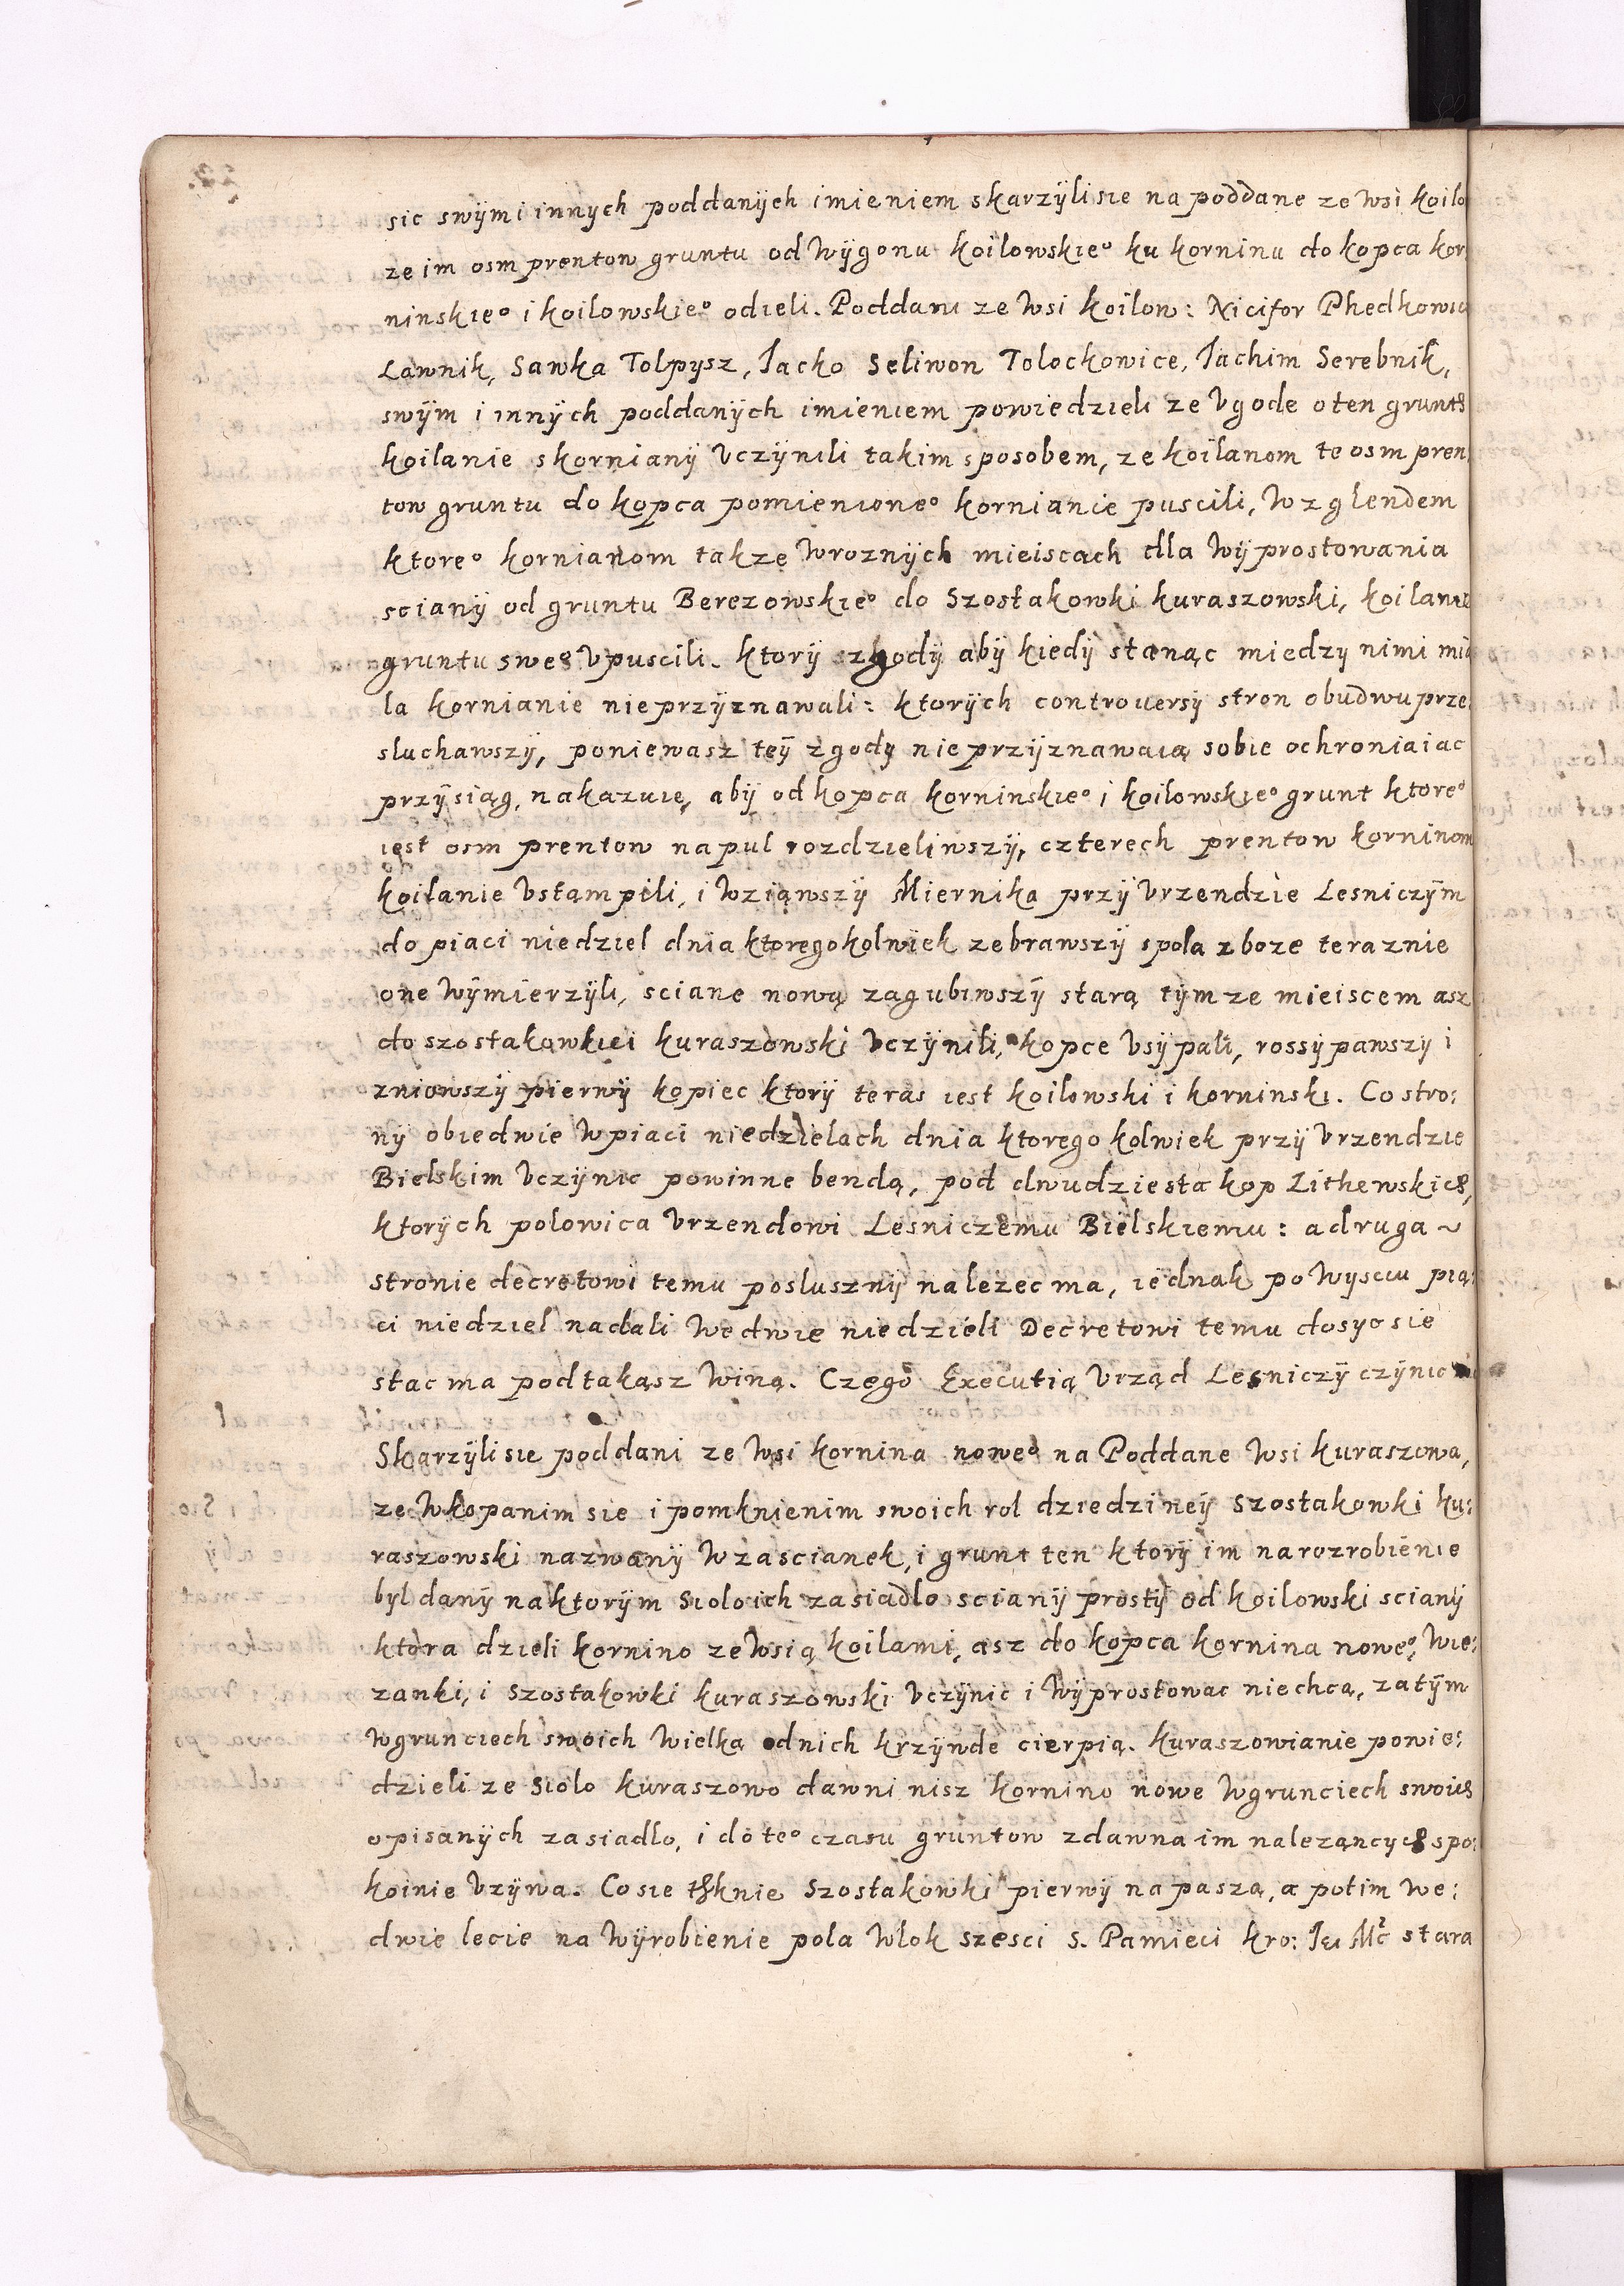 sic swÿmi innych poddanÿch imieniem skarzÿli sie na poddane ze wsi koilo
ze im osm prentow gruntu od wÿgonu koilowskieº ku korninu do kopca kor
ninskieº i koilowskieº odieli. Poddani ze wsi koilow: Nicifor Phedkowic
Lawnik, Sawka Tolpysz, Jacko Seliwon Tolockowice, Jachim Serebnik,
swÿm i innÿch poddanÿch imieniem powiedzieli ze Vgode o ten grunt
koilanie skornianÿ Vczÿnili takim sposobem, ze koilanom te osm pren
tow gruntu do kopca pomienioneº kornianie puscili, Wzglendem
ktoreº kornianom takze Wroznÿch mieiscach dla Wÿprostowania
scianÿ od gruntu Berezowskieº do Szostakowki kuraszowski, koilanie
gruntu sweº Vpuscili. ktorÿ szgodÿ abÿ kiedÿ stanąc miedzy nimi mia
la kornianie nieprzÿznawali: ktorÿch controuersÿ stron obudwu prze:
sluchawszÿ, poniewasz teÿ zgodÿ nie przÿznawaią sobie ochroniaiac
przÿsiąg, nakazuię, abÿ od kopca korninskieº i koilowskieº grunt ktoreº
iest osm prentow napul rozdzieliwszÿ, czterech prentow korninom
koilanie Vstąmpili, i wziąwszÿ Miernika przÿ Vrzendzie Lesniczÿm
do piaci niedziel dnia ktoregokolwiek zebrawszÿ spola zboze teraznie
one Wÿmierzÿli, sciane nową zagubiwszÿ starą tÿmze mieiscem asz
do szostakowkiei kuraszowski Vczÿnili, kopce Vsÿpali, rossÿpawszy i
zniowszÿ pierwÿ kopiec ktorÿ teras iest koilowski i korninski. Co stro:
nÿ obiedwie Wpiaci niedzielach dnia ktorego kolwiek przÿ Vrzendzie
Bielskim Vczÿnic powinne bendą, pod dwudziesta kop Lithewskich,
ktorÿch polowica Vrzendowi Lesniczemu Bielskiemu: a druga ~
stronie decretowi temu posluszny nalezec ma, iednak po Wysciu pią:
ci niedziel nadali Wedwie niedzieli Decretowi temu dosyc sie
stac ma pod takąsz Winą. Czego Executią Vrząd Lesniczÿ czÿnic
Skarzÿli sie poddani ze Wsi kornina noweº na Poddane Wsi kuraszowa,
ze Wkopanim sie i pomknienim swoich rol dziedzineÿ Szostakowki ku:
raszowski nazwanÿ W zascianek, i grunt ten ktorÿ im narozrobienie
byl danÿ naktorÿm Siolo ich zasiadlo scianÿ prostÿ od koilowski scianÿ
ktora dzieli kornino ze Wsią koilami, asz do kopca kornina noweº, Wie:
zanki, i Szostakowki kuraszowski Vczÿnic i Wÿprostowac niechcą, zatÿm
Wgrunciech swoich Wielką od nich krzÿwde cierpią. kuraszowianie powie:
dzieli ze Siolo kuraszowo dawni nisz kornino nowe Wgrunciech swoich
opisanÿch zasiadlo, i do teº czasu gruntow zdawna im nalezących spo:
koinie Vzÿwa. Co sie tknie Szostakowki pierwÿ na paszą, a potim We:
dwie lecie na Wÿrobienie pola Wlok szesci s. Pamieci kro: Jei Mc stara